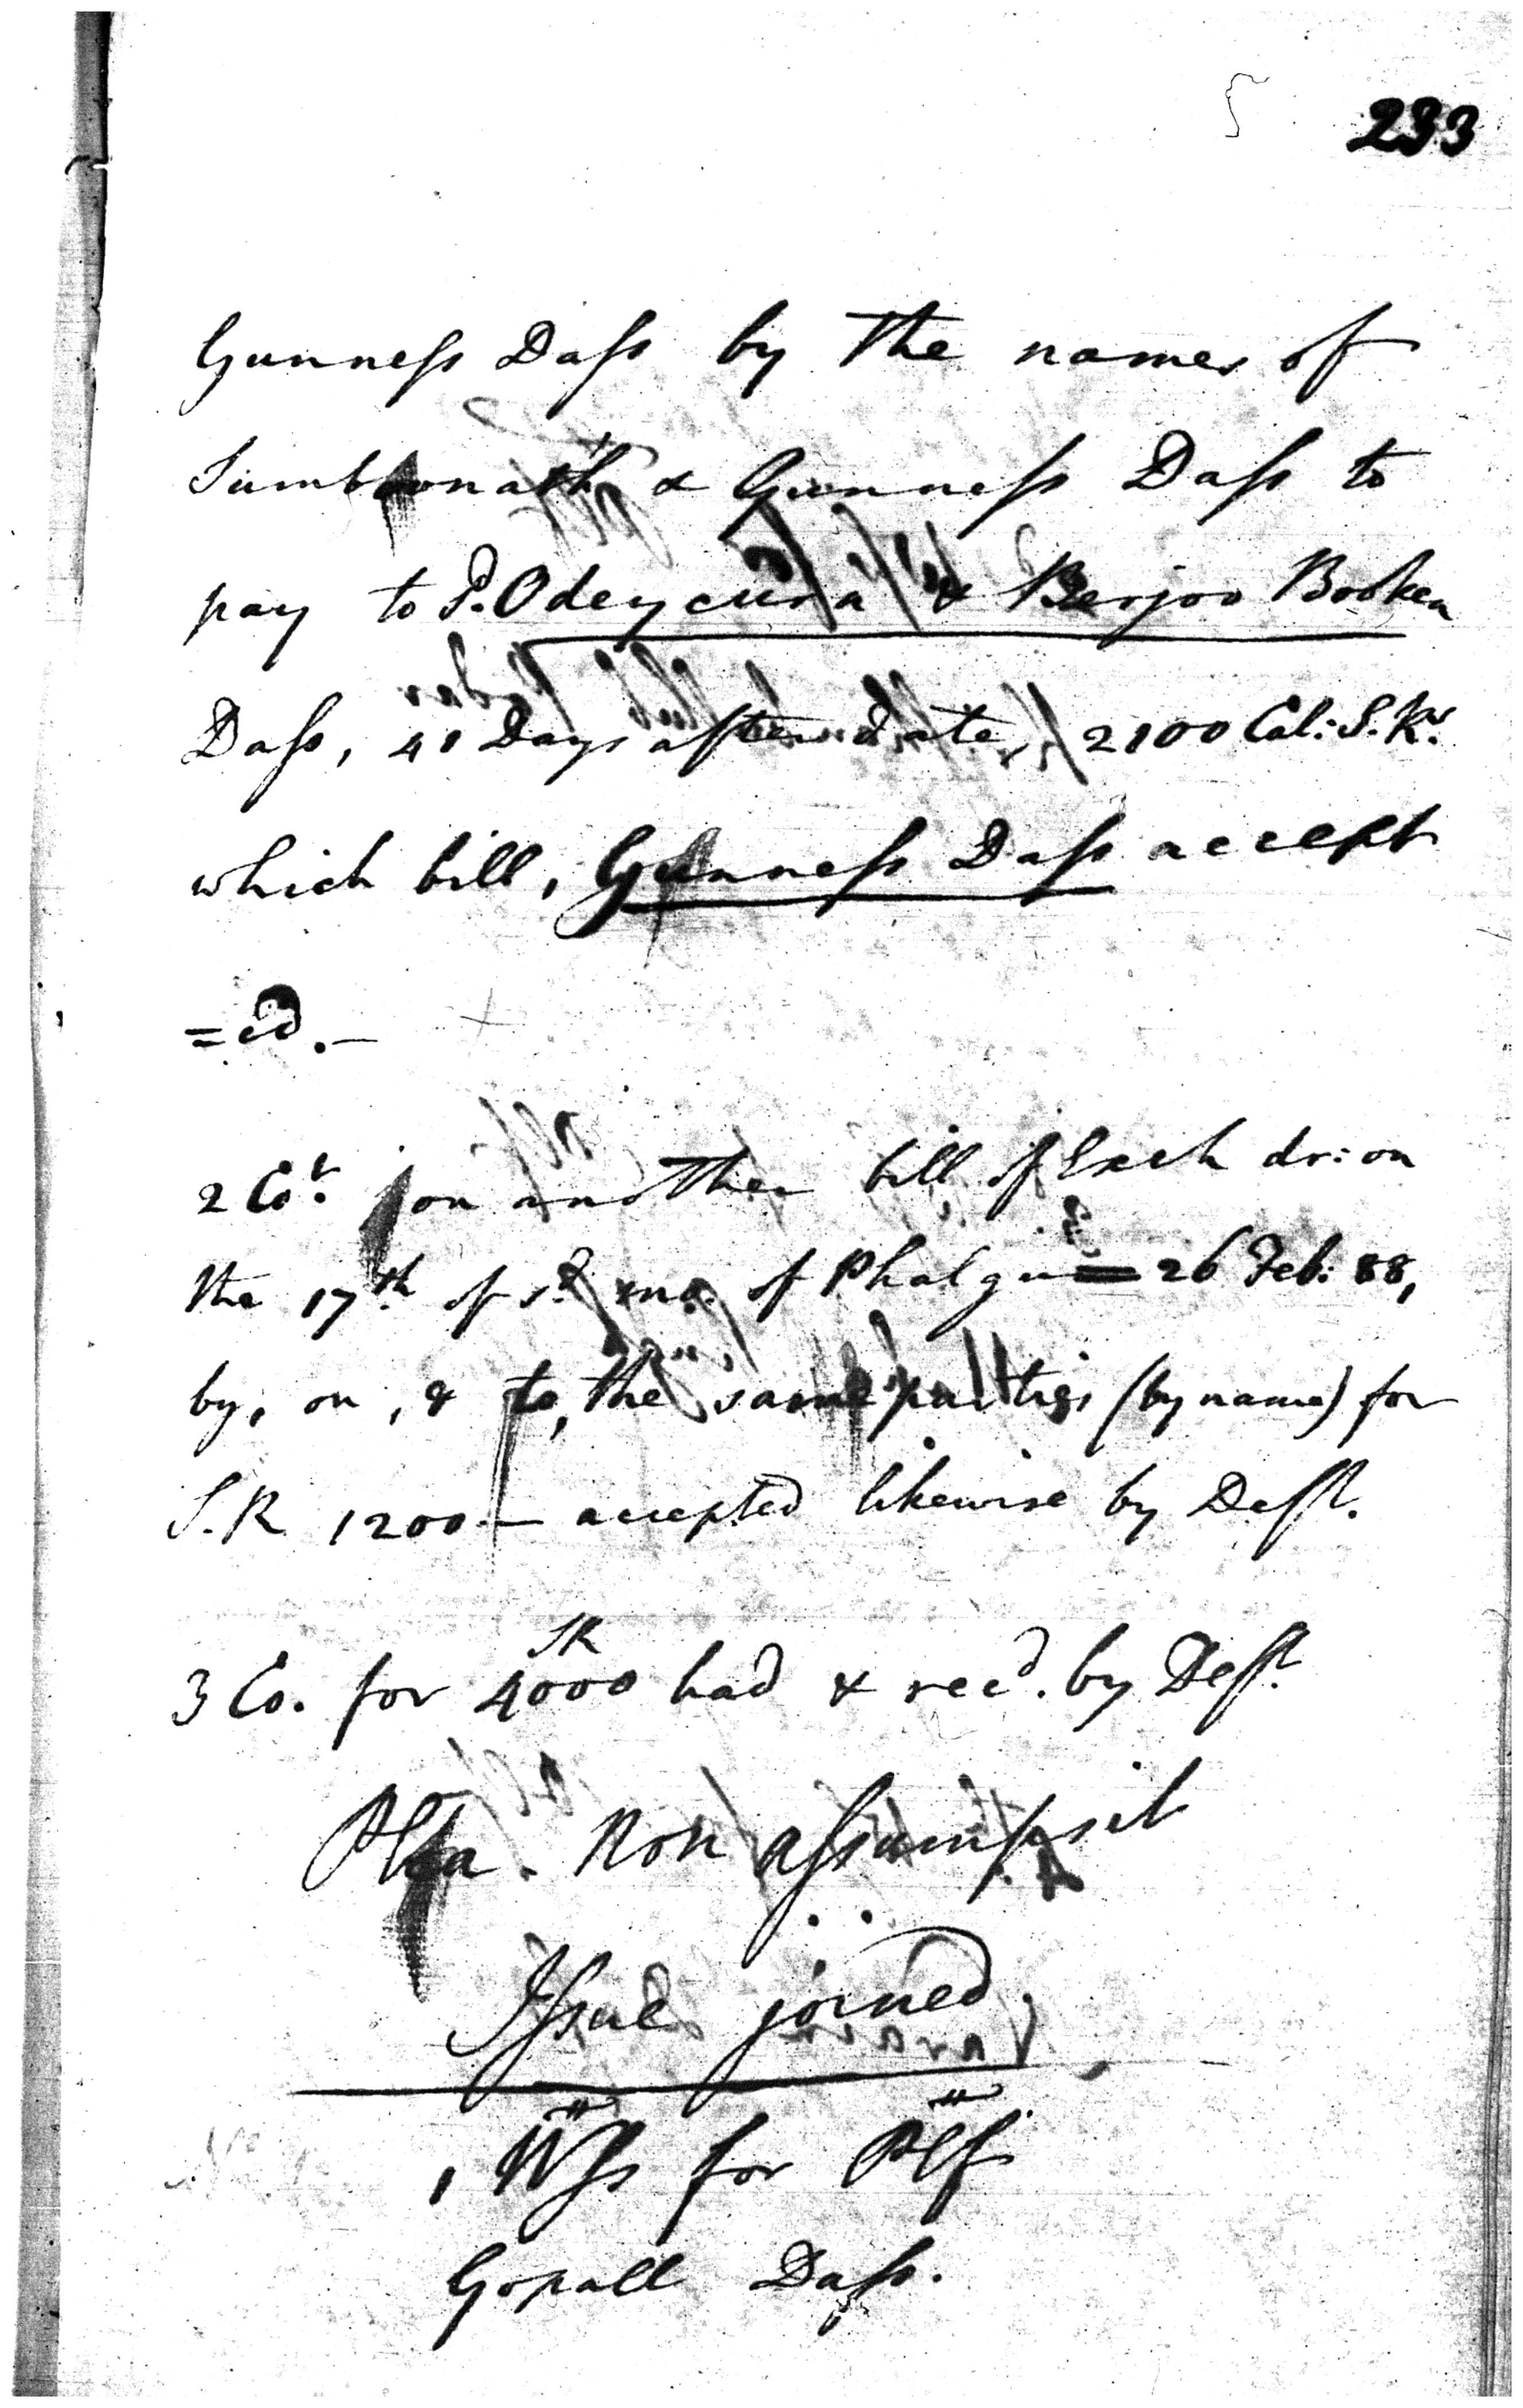 233
Gunness Dass by the names of
Sumboonath & Gunness Dass to
pay to P. Odeycurn & Berjoo Booken
Dass, 41 Days after date, 2100 Cal: S. Rs.
which bill, Gunness Dass accept
=ed.-
2 Cot. on another bill of Exch dr: on
the 17th. of sd. mo. of Phalgun = 26 Feb: 88,
by, on, & to, the same parties (by name) for
S.R 1200 — accepted likewise by Deft.
SR
3 Co. for 4000 had & recd. by Deft.
Plea. Non assumpsit
Issue joined.
1 Wss for Plf
Gopall Dass.